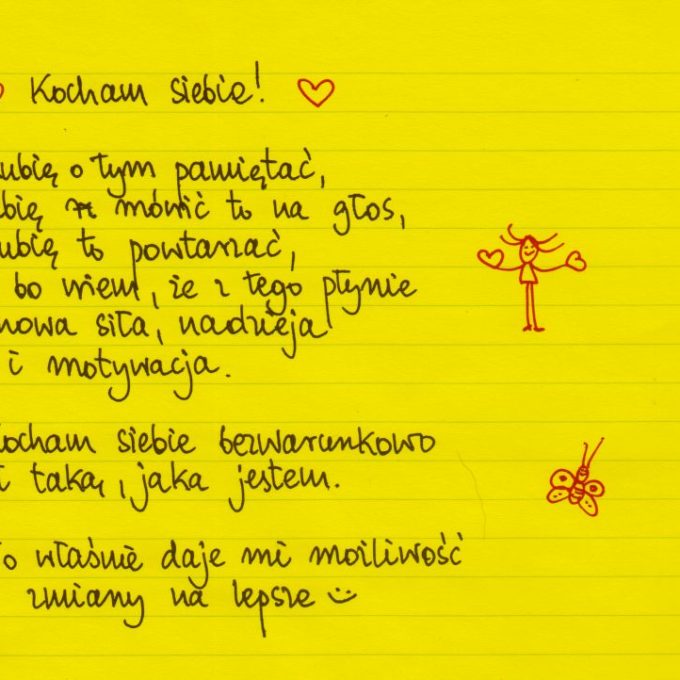 Kocham siebie!
ubię o tym pamiętać,
bię mówić to na głos,
ubię to powtarzać,
bo wiem, że z tego płynie
nowa siła, nadzieja
i motywacja.
ocham siebie bezwarunkowo
i taką, jaka jestem.
o właśnie daje mi możliwość
zmiany na lepsze